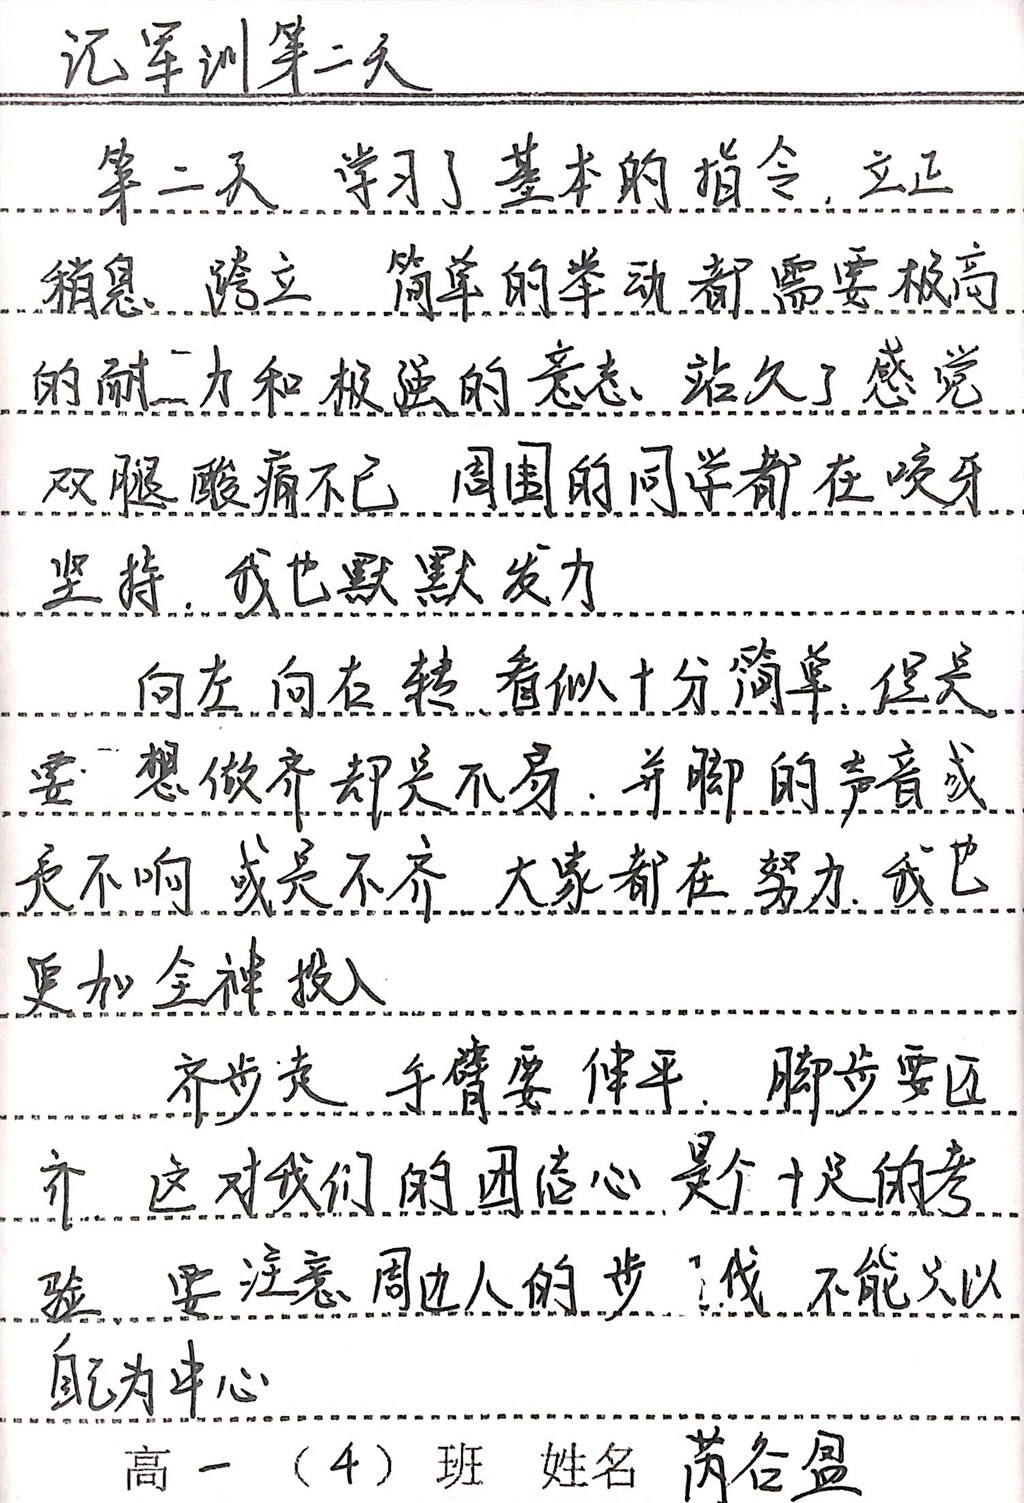 记军训第二天
第二天 学习了基本的指令. 立正
稍息 跨立 简单的举动都需要极高
的耐力和极强的意志 站久了感觉
双腿酸痛不已 周围的同学都在咬牙
坚持. 我也默默发力
向左向右转 看似十分简单. 但是
要想做齐却是不易. 并脚的声音或
是不响 或是不齐 大家都在努力. 我也
更加全神投入
齐步走 手臂要伸平. 脚步要匹
齐 这对我们的团结心 是个十足的考
验 要注意周边人的步伐 不能只以
自己为中心
高一（4）班 姓名 芮谷盈